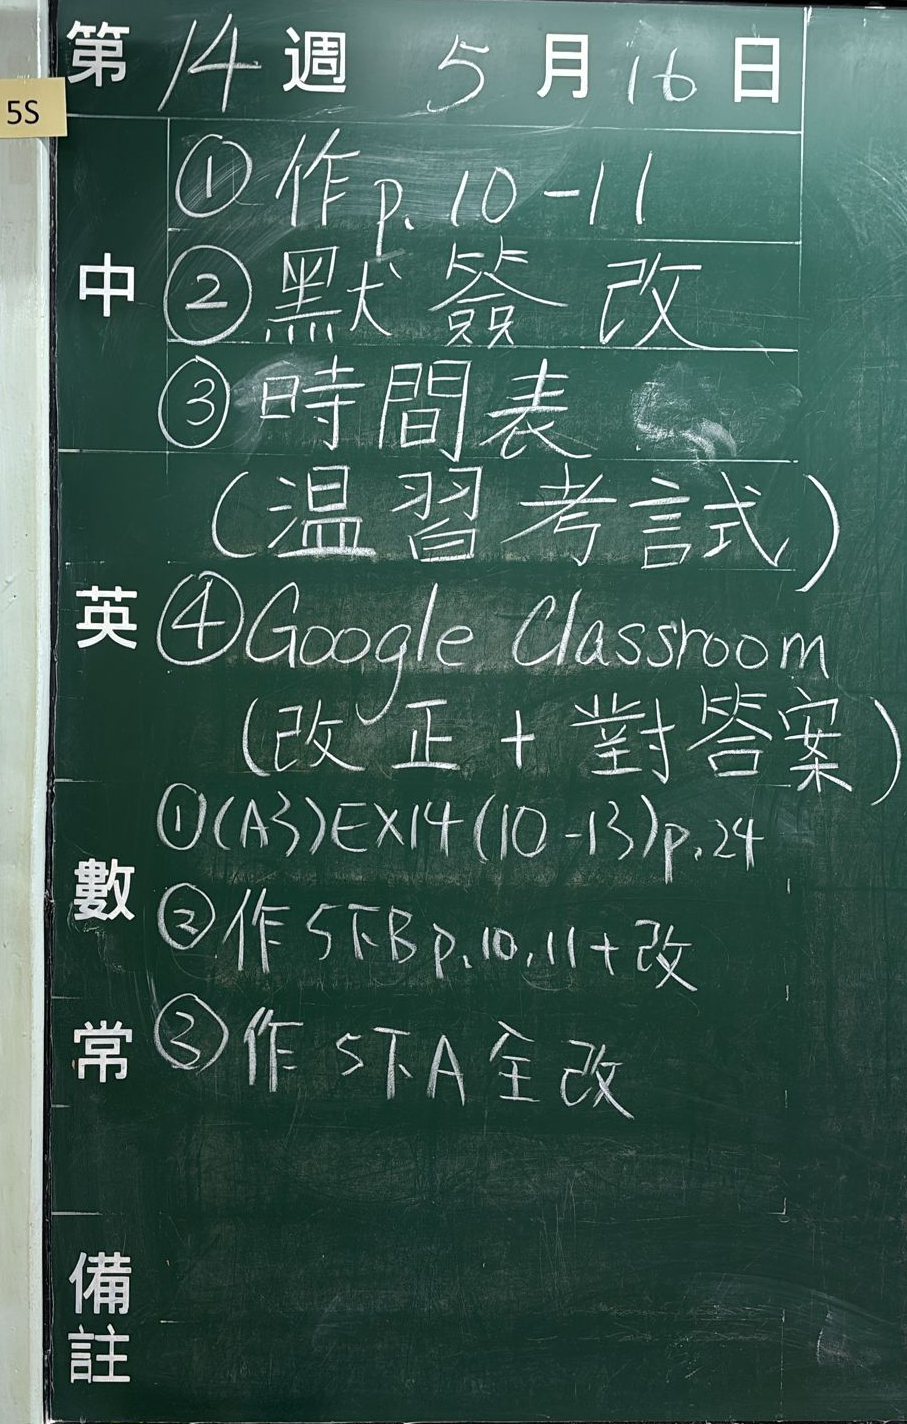 第 14 週 5 月 16 日
5S
中
① 作 p. 10-11
② 默 簽 改
③ 時間表
(温習考試)
英
④ Google Classroom
(改正 + 對答案)
數
① (A3) EX14 (10-13) p.24
② 作 5下B p.10,11 + 改
常
③ 作 5下A 全改
備註